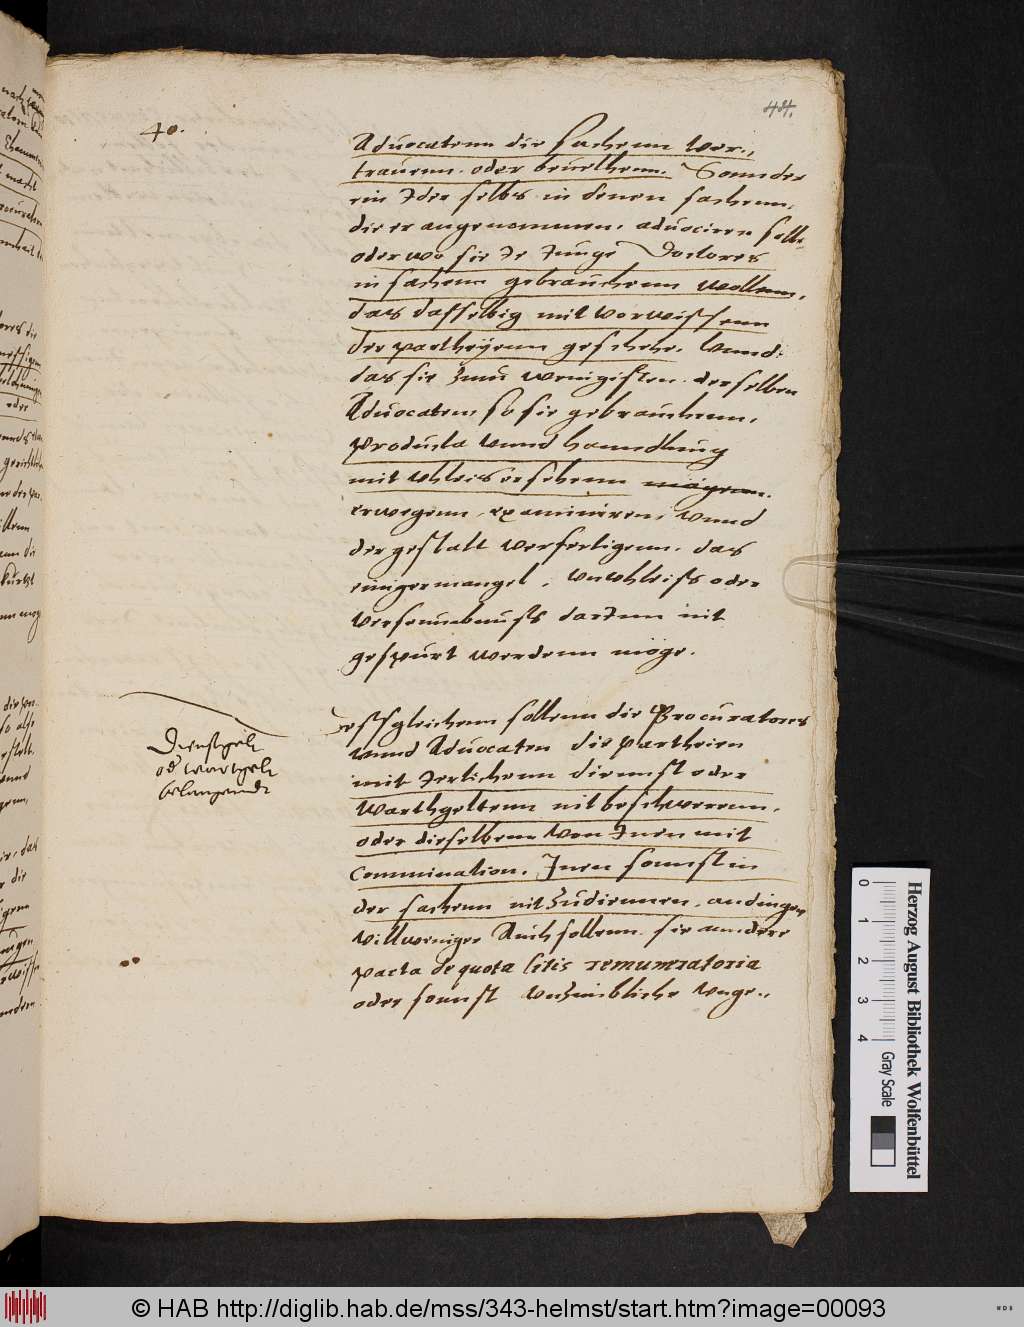 44.
40.
Aduocatenn die sachenn ver„
trauenn. oder beuelhenn. Sonnder
ein Ider selbs in denen sachenn,
die er angenommen, aduociren soll.
oder wo sie Je Junge Doctores
in sachenn gebrauchenn wollenn,
das dasselbig mit vorwissenn
der partheyenn geschehe, vnnd
das sie Zum wenigisten derselben
Aduocaten, so sie gebrauchenn,
producta vnnd hanndlung
mit vhleis ersehenn mögenn.
erwegenn, examiniren, vnnd
der gestallt verfertigenn, das
einiger mangel, vnvhleiss oder
verseumbnuss darInn nit
gespürt werdenn möge.
Desssgleichenn sollenn die Procuratores
vnnd Aduocaten die partheien
mit Jerlichenn diennst oder
Warthgeltenn nit beschwerenn,
oder dieselbenn von Inen mit
Commination, Inen sonnst in
der sachenn nit Zudiennen, andingen
Vill weniger Auch sollenn sie anndere
pacta de quota litis remuneratoria
oder sonnst vnzimbliche wege„
Dienstgelt
od wartgelt
belangendt
Herzog August Bibliothek Wolfenbüttel
0 1 2 3 4
Gray Scale
© HAB http://diglib.hab.de/mss/343-helmst/start.htm?image=00093